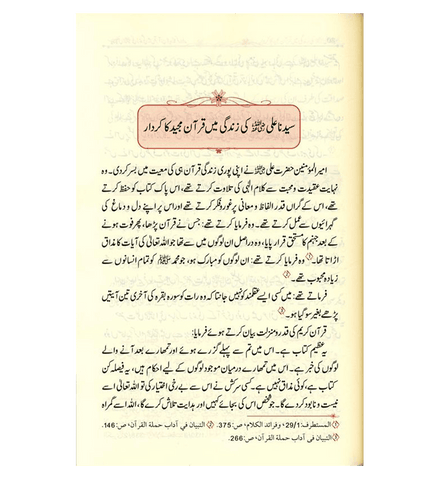 سیدنا علی رضی اللہ عنہ کی زندگی میں قرآن مجید کا کردار
امیر المؤمنین حضرت علی رضی اللہ عنہ نے اپنی پوری زندگی قرآن ہی کی معیت میں بسر کر دی۔ وہ
نہایت عقیدت و محبت سے کلام الٰہی کی تلاوت کرتے تھے، اس پاک کتاب کو حفظ کرتے
تھے، اس کے گراں قدر الفاظ و معانی پر غور و فکر کرتے تھے اور اس پر اپنے دل و دماغ کی
گہرائیوں سے عمل کرتے تھے۔ وہ فرمایا کرتے تھے: جس نے قرآن پڑھا، پھر فوت ہونے
کے بعد جہنم کا مستحق قرار پایا، وہ دراصل ان لوگوں میں سے تھا جو اللہ تعالیٰ کی آیات کا مذاق
اڑاتا تھا۔① وہ فرمایا کرتے تھے: ان لوگوں کو مبارک ہو، جو محمد ﷺ کو تمام انسانوں سے
زیادہ محبوب تھے۔②
فرماتے تھے: میں کسی ایسے عقلمند کو نہیں جانتا کہ وہ رات کو سورہ بقرہ کی آخری تین آیتیں
پڑھے بغیر سو گیا ہو۔③
قرآن کریم کی قدر و منزلت بیان کرتے ہوئے فرمایا:
یہ عظیم کتاب ہے۔ اس میں تم سے پہلے گزرے ہوئے اور تمھارے بعد آنے والے
لوگوں کی خبر ہے۔ اس میں تمھارے درمیان موجود لوگوں کے لیے احکام ہیں، یہ فیصلہ کن
کتاب ہے، کوئی مذاق نہیں ہے۔ کسی سرکش نے اس سے بے رخی اختیار کی تو اللہ تعالیٰ اسے
نیست و نابود کر دے گا۔ جو شخص اس کی بجائے کہیں اور ہدایت تلاش کرے گا، اللہ اسے گمراہ
① المستطرف: 29/1، وفرائد الكلام، ص: 375. ② التبيان في آداب حملة القرآن، ص: 146.
③ التبيان في آداب حملة القرآن، ص: 266.